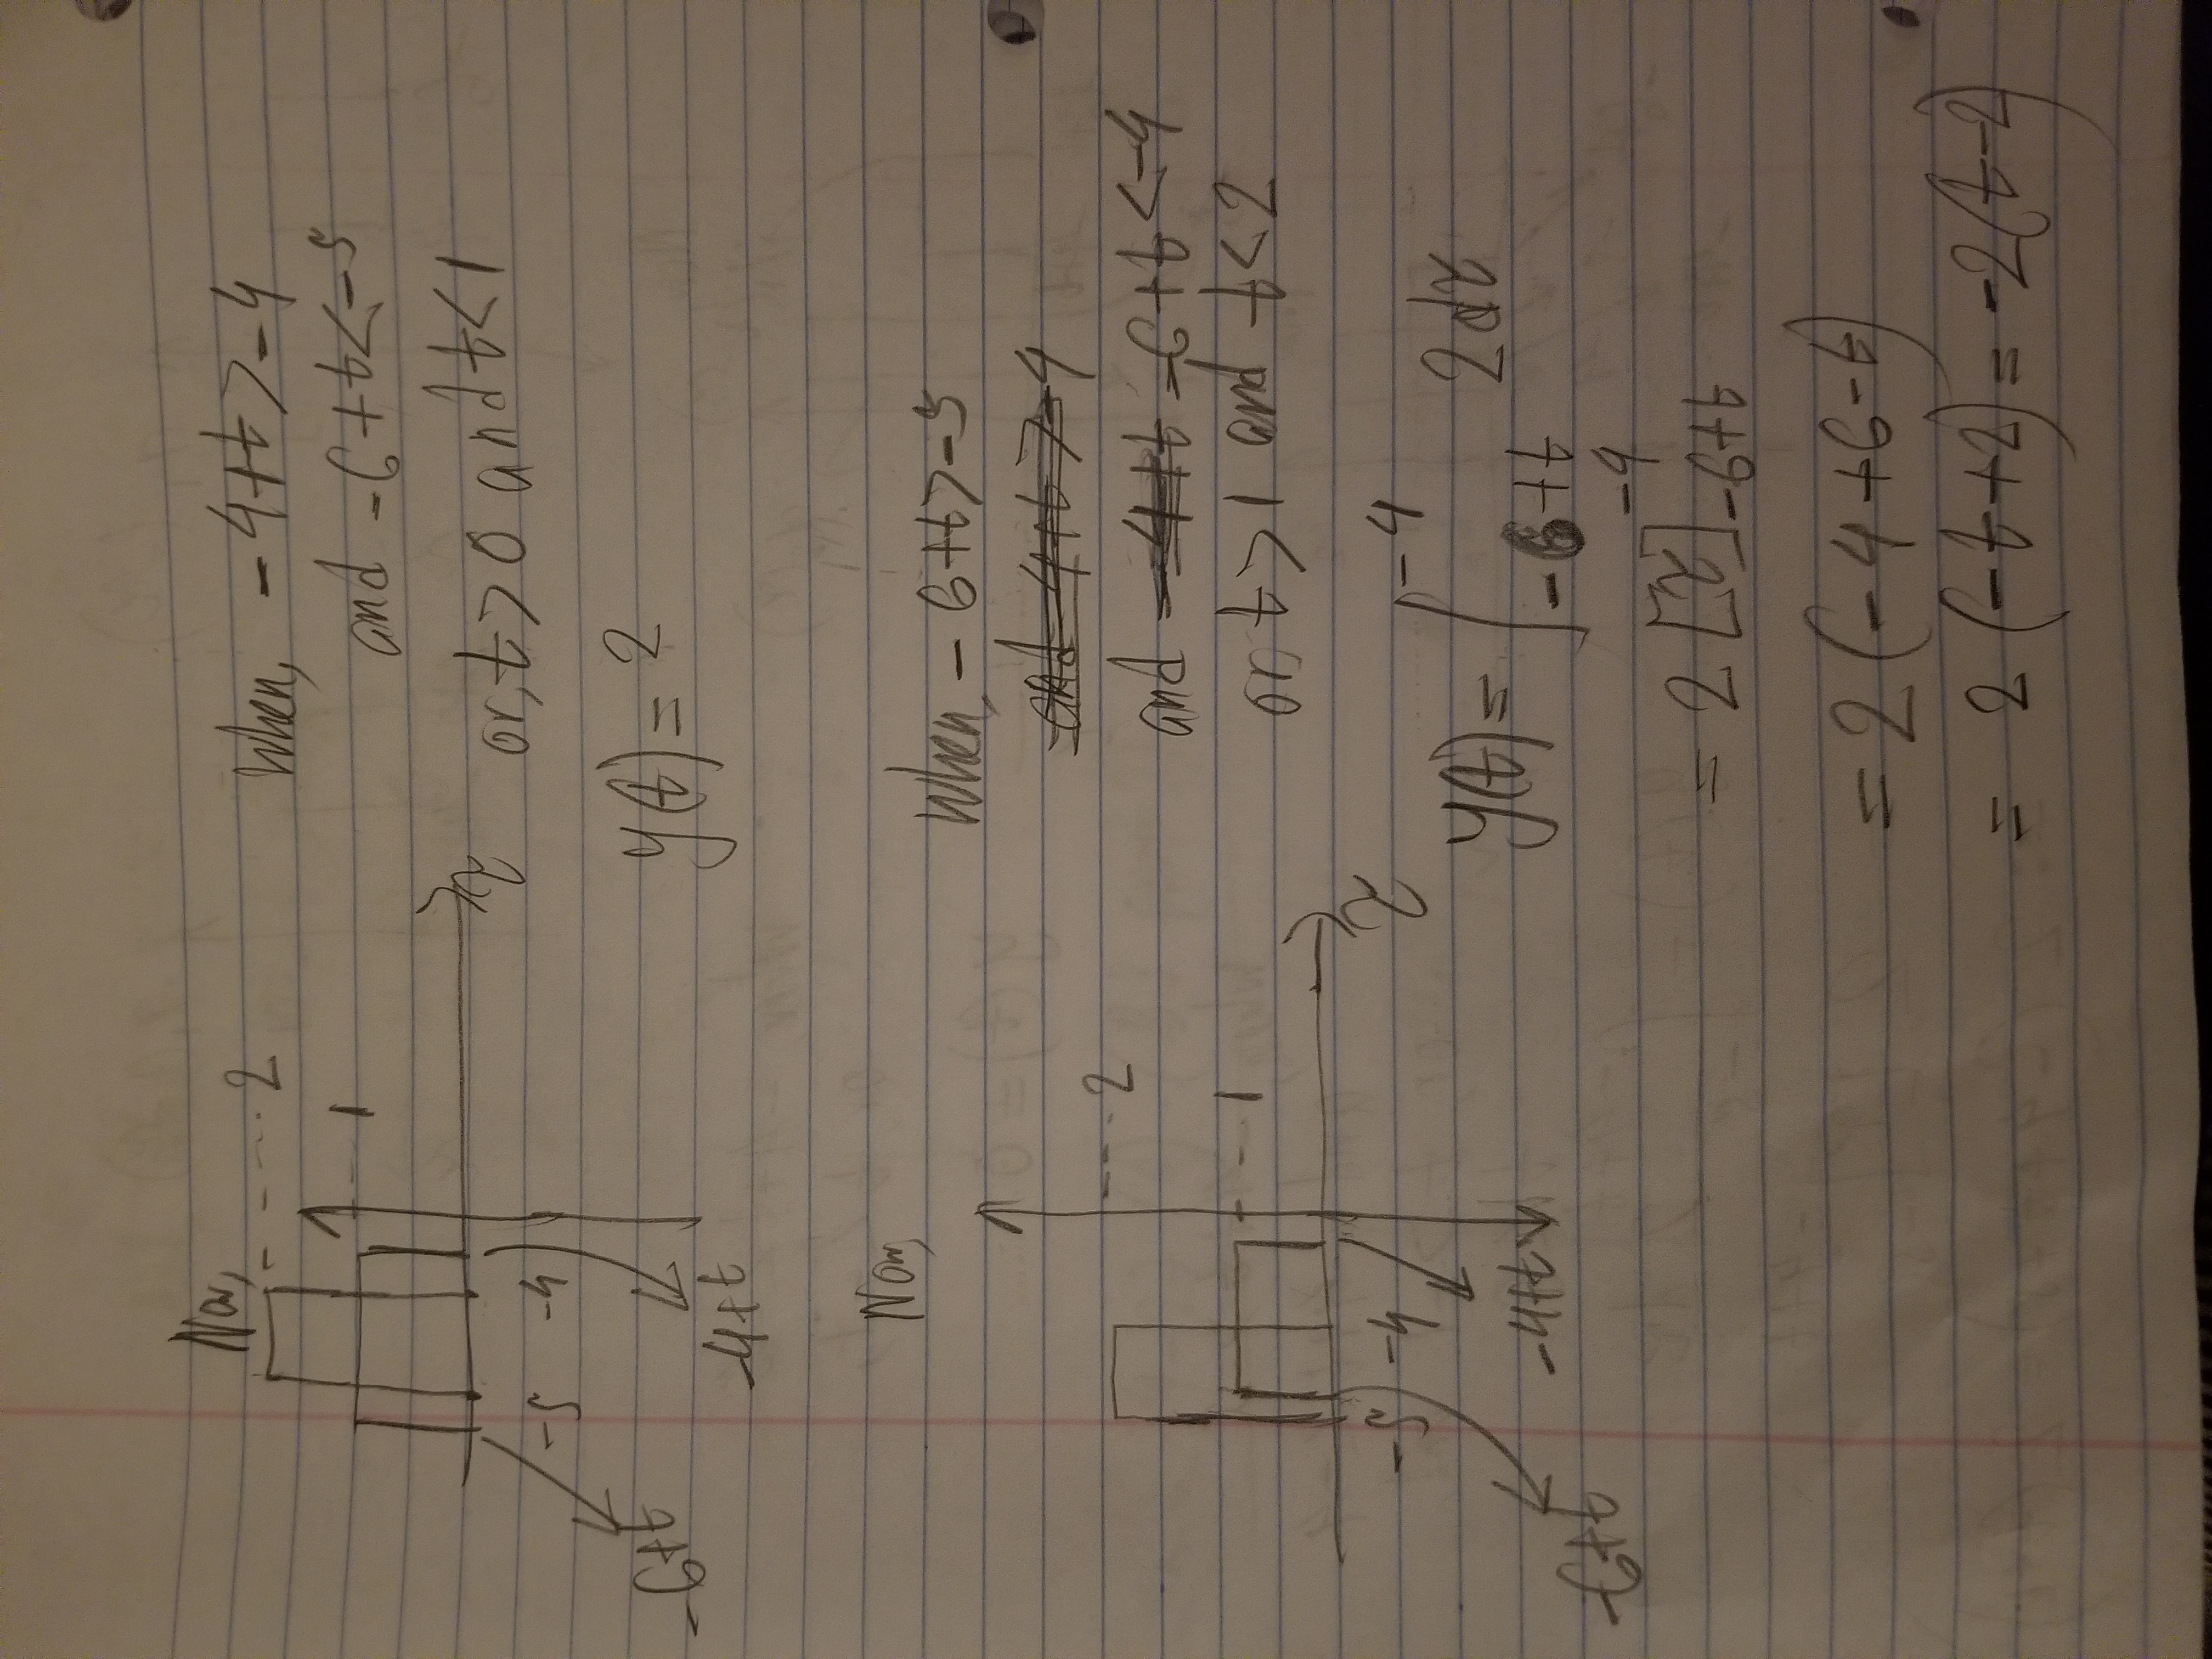 Now,
2
1
τ
-5 -4
-6+t
-4+t
When, -4+t>-4
and -6+t<-5
or, t>0 and t<1
y(t) = 2
Now,
2
1
τ
-5 -4
-4+t
-6+t
When, -6+t>-5
and -4+t>-4
and -4+t -6+t<-4
or, t>1 and t<2
y(t) = ∫_{-6+t}^{-4} 2dτ
= 2[τ]_{-6+t}^{-4}
= 2(-4+6-t)
= 2(-t+2) = -2(t-2)